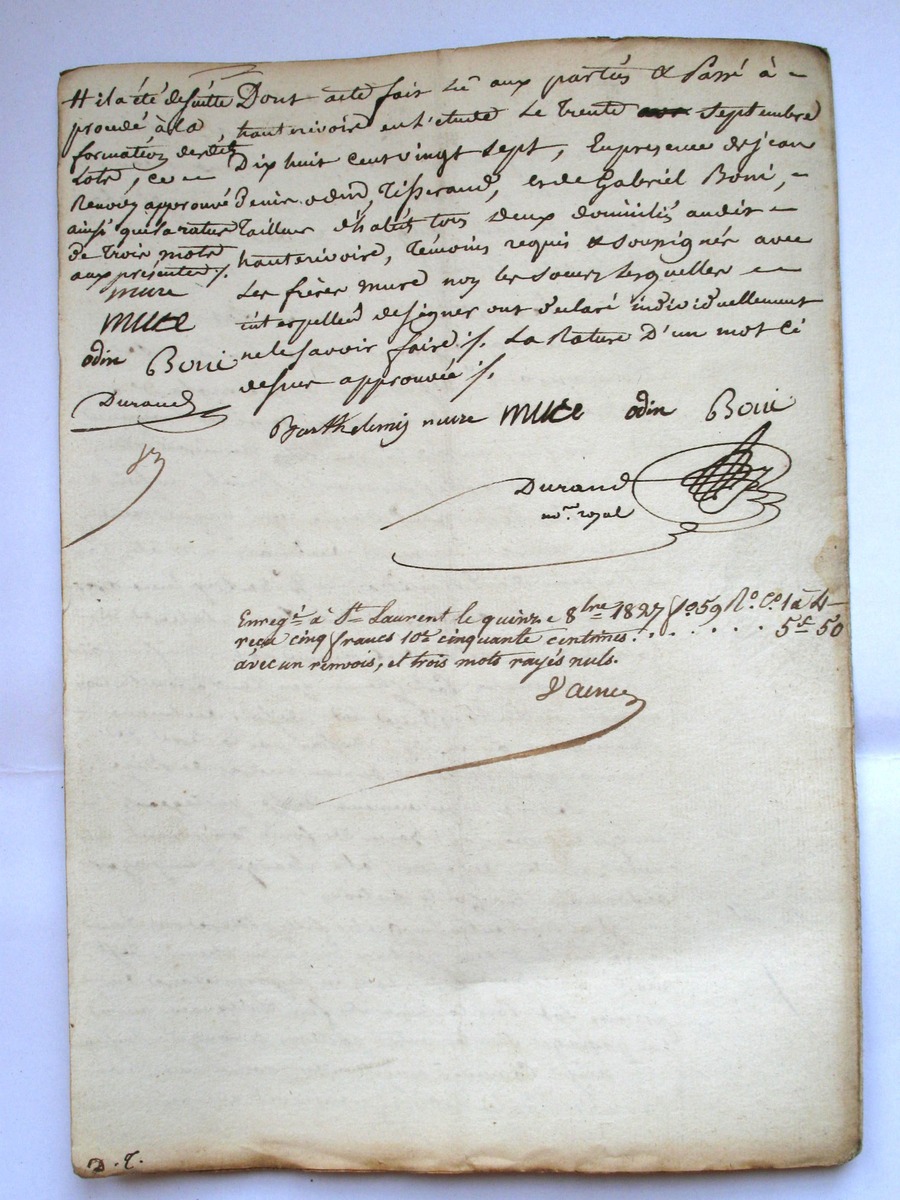 # il a été de suitte
procédé, à la
formation desdits
Lots, ce —
Renvoy approuvé
ainsi que la rature
de trois mots
aux présentes /.
mure
mure
odin Boni
Durand
Dont acte fait Lû aux parties & Passé à —
hauterivoire en l'étude Le trente septembre
Dix huit cent vingt sept, En presence de jean
Denis odin, Tisserand, et de Gabriel Boni, —
Tailleur d'habits tous deux domiciliés audit —
hauterivoire, témoins requis & soussignés avec
Les frères mure non les sœurs lesquelles —
interpellées de signer ont déclaré individuellement
ne le savoir faire /. La Rature D'un mot ci
dessus approuvée /.
Barthelemis mure mure odin Boni
Durand
no.re royal
Enreg.é à S.t Laurent le quinze 8.bre 1827 f.o 59 R.o C.es 1 à 4
reçu cinq francs 10.e cinquante centimes . . . . . . . 5.f 50
avec un renvois, et trois mots rayés nuls.
D. T.